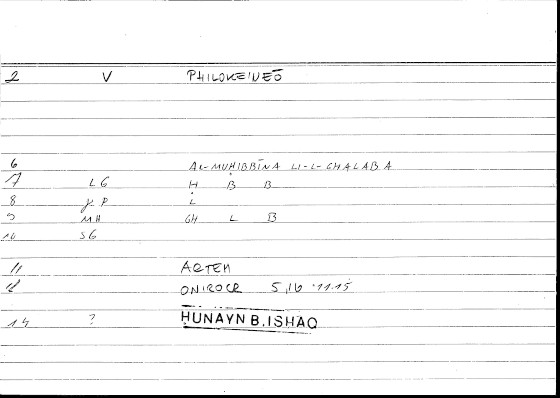 2 V PHILONEIKEŌ
6 AL-MUḤIBBĪNA LI-L-GHALABA
7 LG Ḥ B B
8 P L
9 MH GH L B
10 SG
11 ARTEM
12 ONIROCR 5,16 11.15
14 ? ḤUNAYN B. ISḤAQ